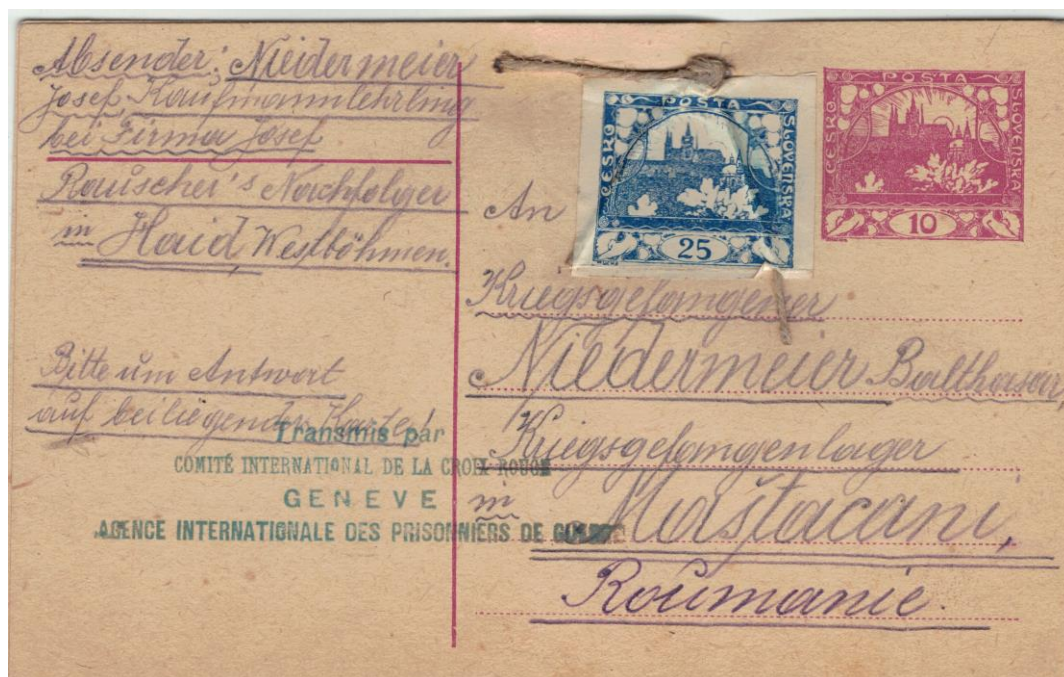 Absender: Niedermeier
Josef, Kaufmannlehrling
bei Firma Josef
Rauscher's Nachfolger
in Haid, Westböhmen.
Bitte um Antwort
auf beiliegender Karte!
Transmis par
COMITÉ INTERNATIONAL DE LA CROIX-ROUGE
GENEVE
AGENCE INTERNATIONALE DES PRISONNIERS DE GUERRE
POSTA
ČESKO
SLOVENSKA
25
POSTA
ČESKO
SLOVENSKA
10
An
Kriegsgefangener
Niedermeier Balthasar
Kriegsgefangenlager
in Maştacani,
Roumanie.